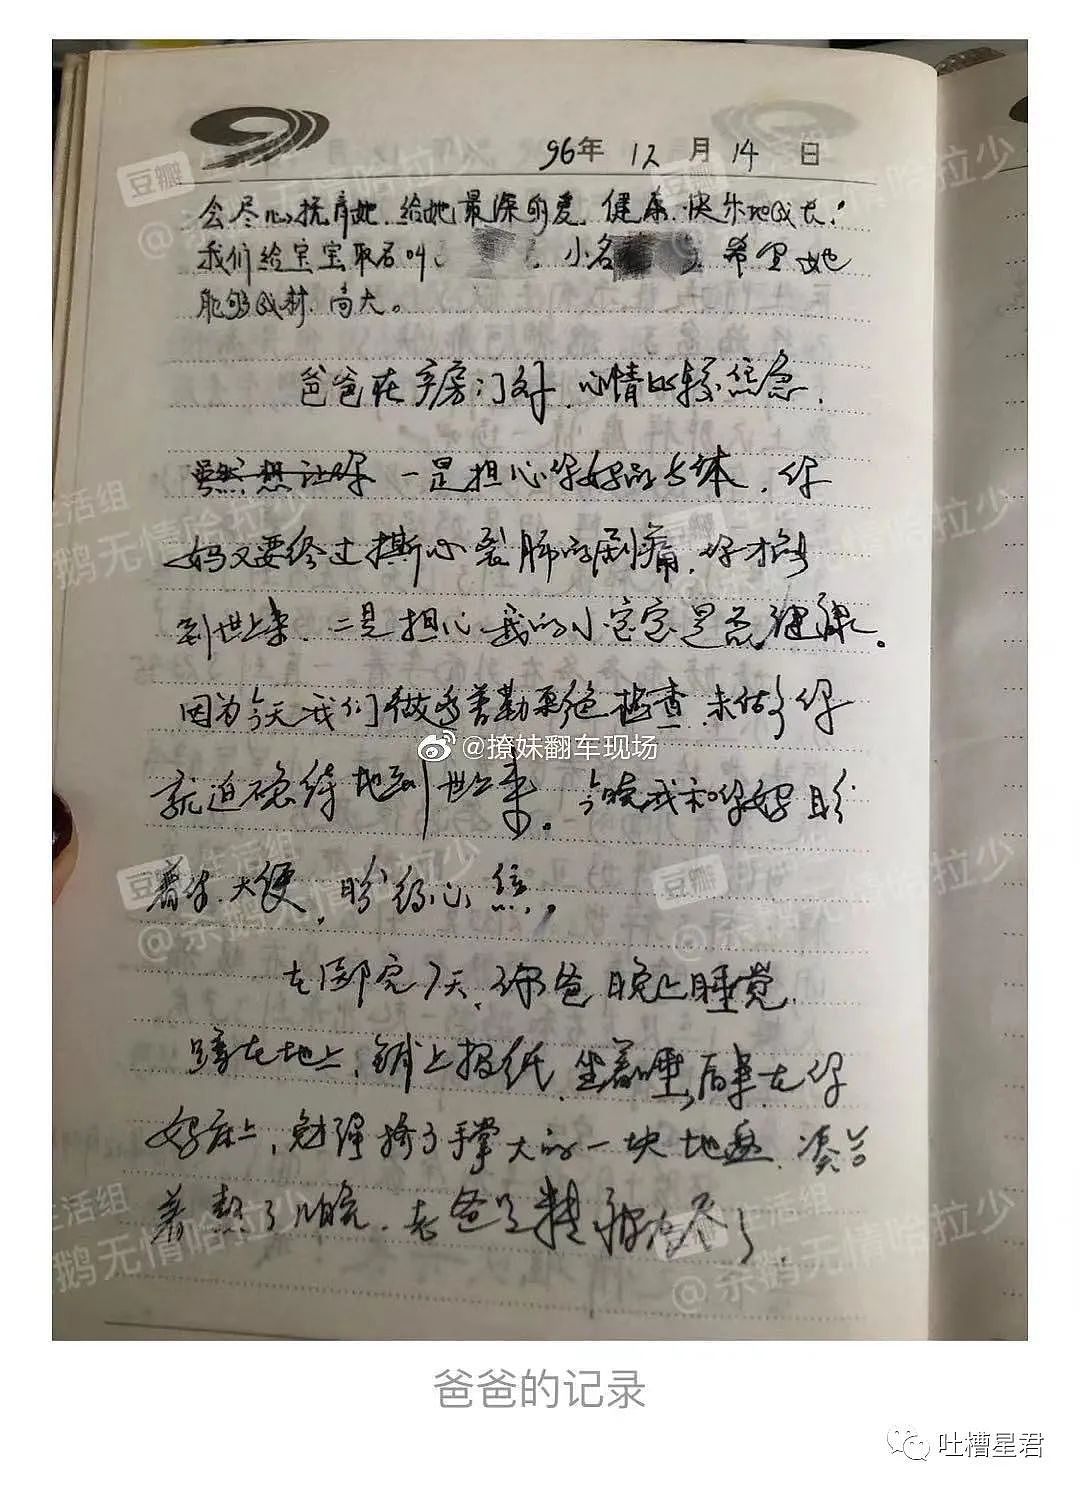 96年 12月 14日
会尽心抚育她 给她最深的爱 健康 快乐地成长!
我们给宝宝取名叫 小名 希望她
能够成材 高大。
爸爸在产房门外,心情比较焦急,
虽然想让你 一是担心你妈的身体,你
妈又要经过撕心裂肺的剧痛,你才能
到世上来,二是担心我的小宝宝是否健康。
因为今天我们做多普勒彩色检查,未做了你
就迫 地到世上来。今晚我和你妈盼
着你大便,盼得心焦。
在医院7天,你爸晚上睡觉
蹲在地上,铺上报纸,坐着睡,后来在你
妈床上,勉强挤了手掌大的一块地盘,凑合
着熬了几晚,老爸已精疲力尽了,
豆瓣 生活组
@杀鹅无情哈拉少
@撩妹翻车现场
爸爸的记录
吐槽星君